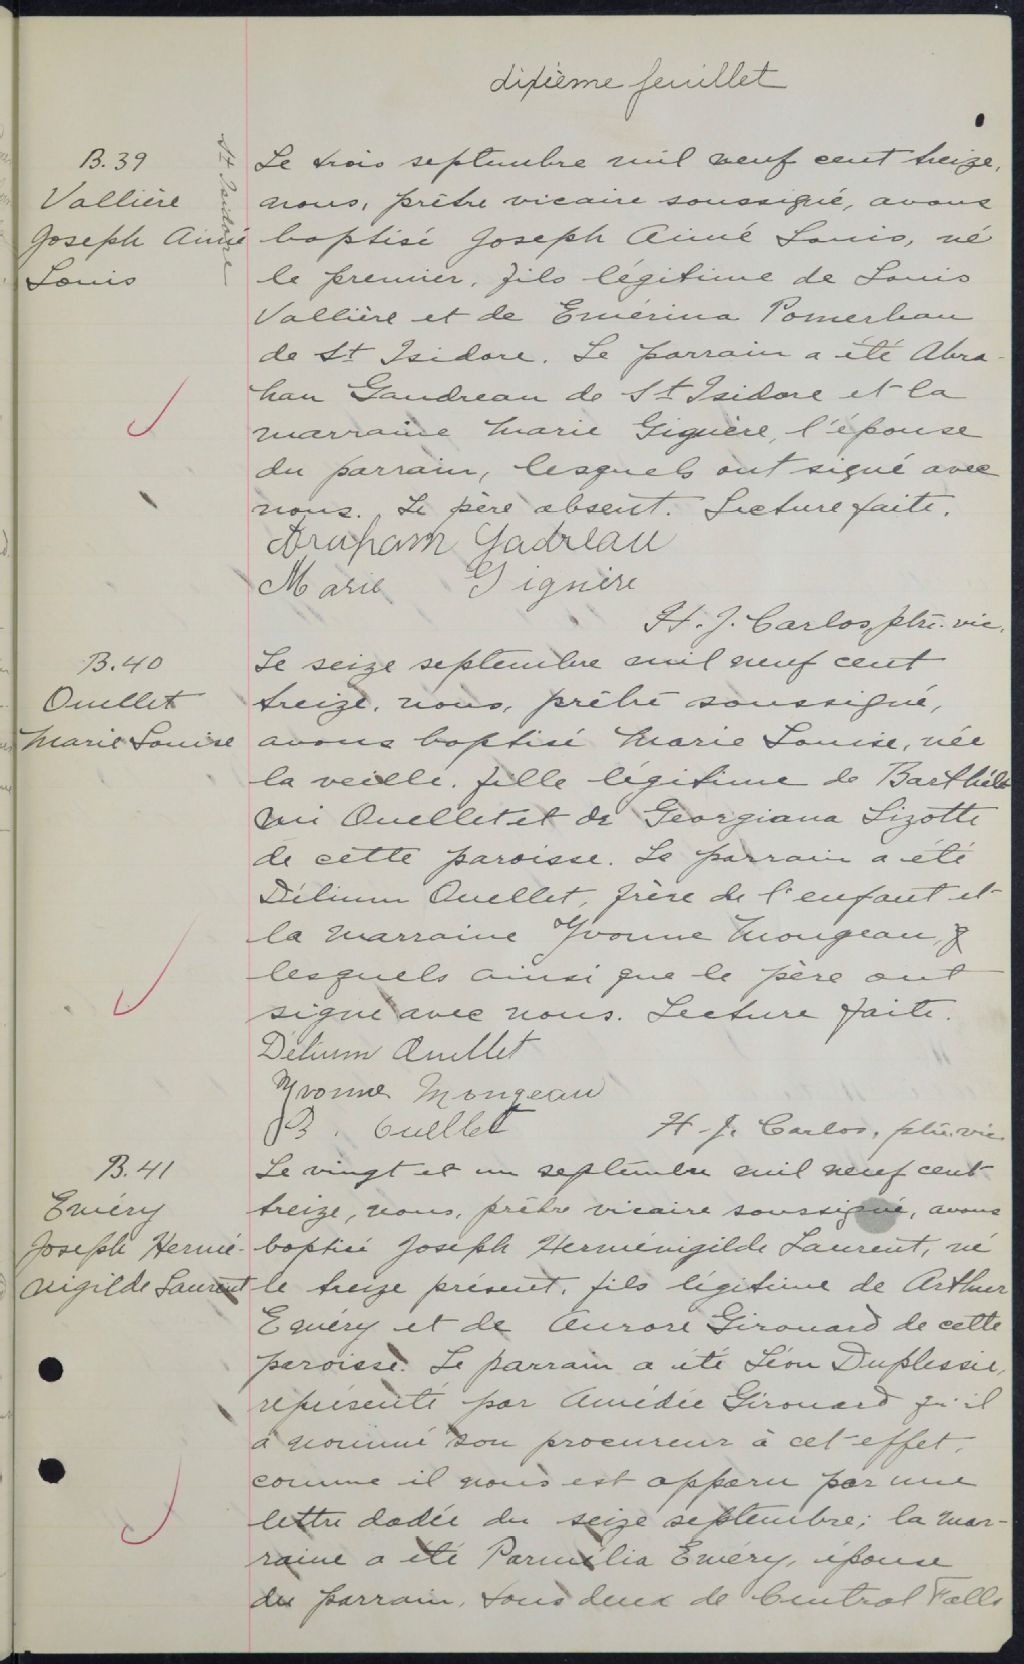 dixième feuillet
B.39
Vallière
Joseph Aimé
Louis
St Isidore
Le trois septembre mil neuf cent treize,
nous, prêtre vicaire soussigné, avons
baptisé Joseph Aimé Louis, né
le premier, fils légitime de Louis
Vallière et de Emérina Pomerleau
de St Isidore. Le parrain a été Abra-
ham Gaudreau de St Isidore et la
marraine Marie Giguère, l'épouse
du parrain, lesquels ont signé avec
nous. Le père absent. Lecture faite.
Abraham Gadreau
Marie Giguère
H. J. Carlos, ptre. vic.
B.40
Ouellet
Marie Louise
Le seize septembre mil neuf cent
treize, nous, prêtre soussigné,
avons baptisé Marie Louise, née
la veille, fille légitime de Barthélé
mi Ouellet et de Georgiana Lizotte
de cette paroisse. Le parrain a été
Délium Ouellet, frère de l'enfant et
la marraine Yvonne Mongeau,
lesquels ainsi que le père ont
signé avec nous. Lecture faite.
Délium Ouellet
Yvonne Mongeau
B. Ouellet
H. J. Carlos, ptre. vic.
B.41
Eméry
Joseph Hermé-
nigilde Laurent
Le vingt et un septembre mil neuf cent
treize, nous, prêtre vicaire soussigné, avons
baptisé Joseph Herménigilde Laurent, né
le treize présent, fils légitime de Arthur
Eméry et de Aurore Girouard de cette
paroisse. Le parrain a été Léon Duplessis,
représenté par Amédée Girouard qu'il
a nommé son procureur à cet effet,
comme il nous est apparu par une
lettre dadée du seize septembre; la mar-
raine a été Parmélia Eméry, épouse
du parrain, tous deux de Central Falls